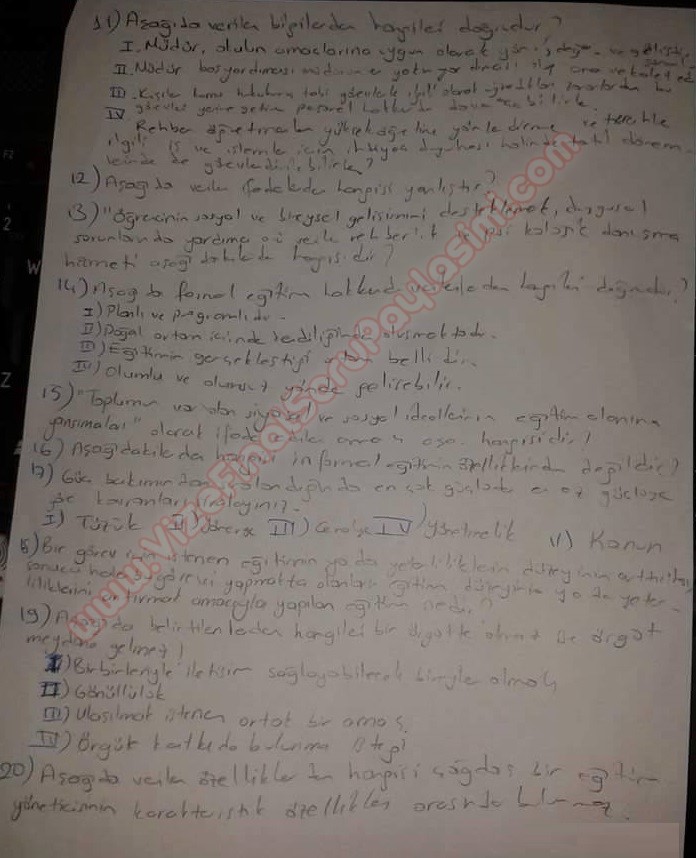 11) Aşağıda verilen bilgilerden hangileri doğrudur?
I. Müdür, okulun amaçlarına uygun olarak
II. Müdür başyardımcısı müdürün
III. Kişiler kamu hukukuna tabi görevlerle ilgili olarak
IV görevleri yerine getiren personel hakkında dava
Rehber öğretmenler yükseköğretime yönlendirme ve tercihle
ilgili iş ve işlemler için ihtiyaç duyulması halinde tatil dönem-
lerinde de görevlendirilebilirler?
12) Aşağıda verilen ifadelerden hangisi yanlıştır?
13) "Öğrencinin sosyal ve bireysel gelişimini desteklemek, duygusal
sorunlarında yardımcı verilen rehberlik ve psikolojik danışma
hizmeti aşağıdakilerden hangisidir?
14) Aşağıda formal eğitim hakkında verilenlerden hangileri doğrudur?
I) Planlı ve programlıdır.
II) Doğal ortam içinde kendiliğinden oluşmaktadır.
III) Eğitimin gerçekleştiği ortam bellidir.
IV) Olumlu ve olumsuz yönde gelişebilir.
15) "Toplumun var olan siyasal ve sosyal ideallerinin eğitim alanına
yansımaları" olarak ifade edilen amaç aşa. hangisidir?
16) Aşağıdakilerden hangisi informal eğitimin özelliklerinden değildir?
17) Güç bakımından sıralandığında en çok güçlüden en az güçlüye
göre kavramları sıralayınız.
I) Tüzük II) Yönerge III) Genelge IV) Yönetmelik V) Kanun
18) Bir görev için istenen eğitimin ya da yeterliliklerin düzeyinin arttırılması
sonucu halen bu görevi yapmakta olanların eğitim düzeyini ya da yeter-
liliklerini arttırmak amacıyla yapılan eğitim nedir?
19) Aşağıda belirtilenlerden hangileri bir örgütte olmaz ise örgüt
meydana gelmez?
I) Birbirleriyle iletişim sağlayabilecek bireyler olmalı
II) Gönüllülük
III) Ulaşılmak istenen ortak bir amaç
IV) Örgüte katkıda bulunma isteği
20) Aşağıda verilen özelliklerden hangisi çağdaş bir eğitim
yöneticisinin karakteristik özellikleri arasında bulunmaz.
www.VizeFinalSoruPaylasimi.com